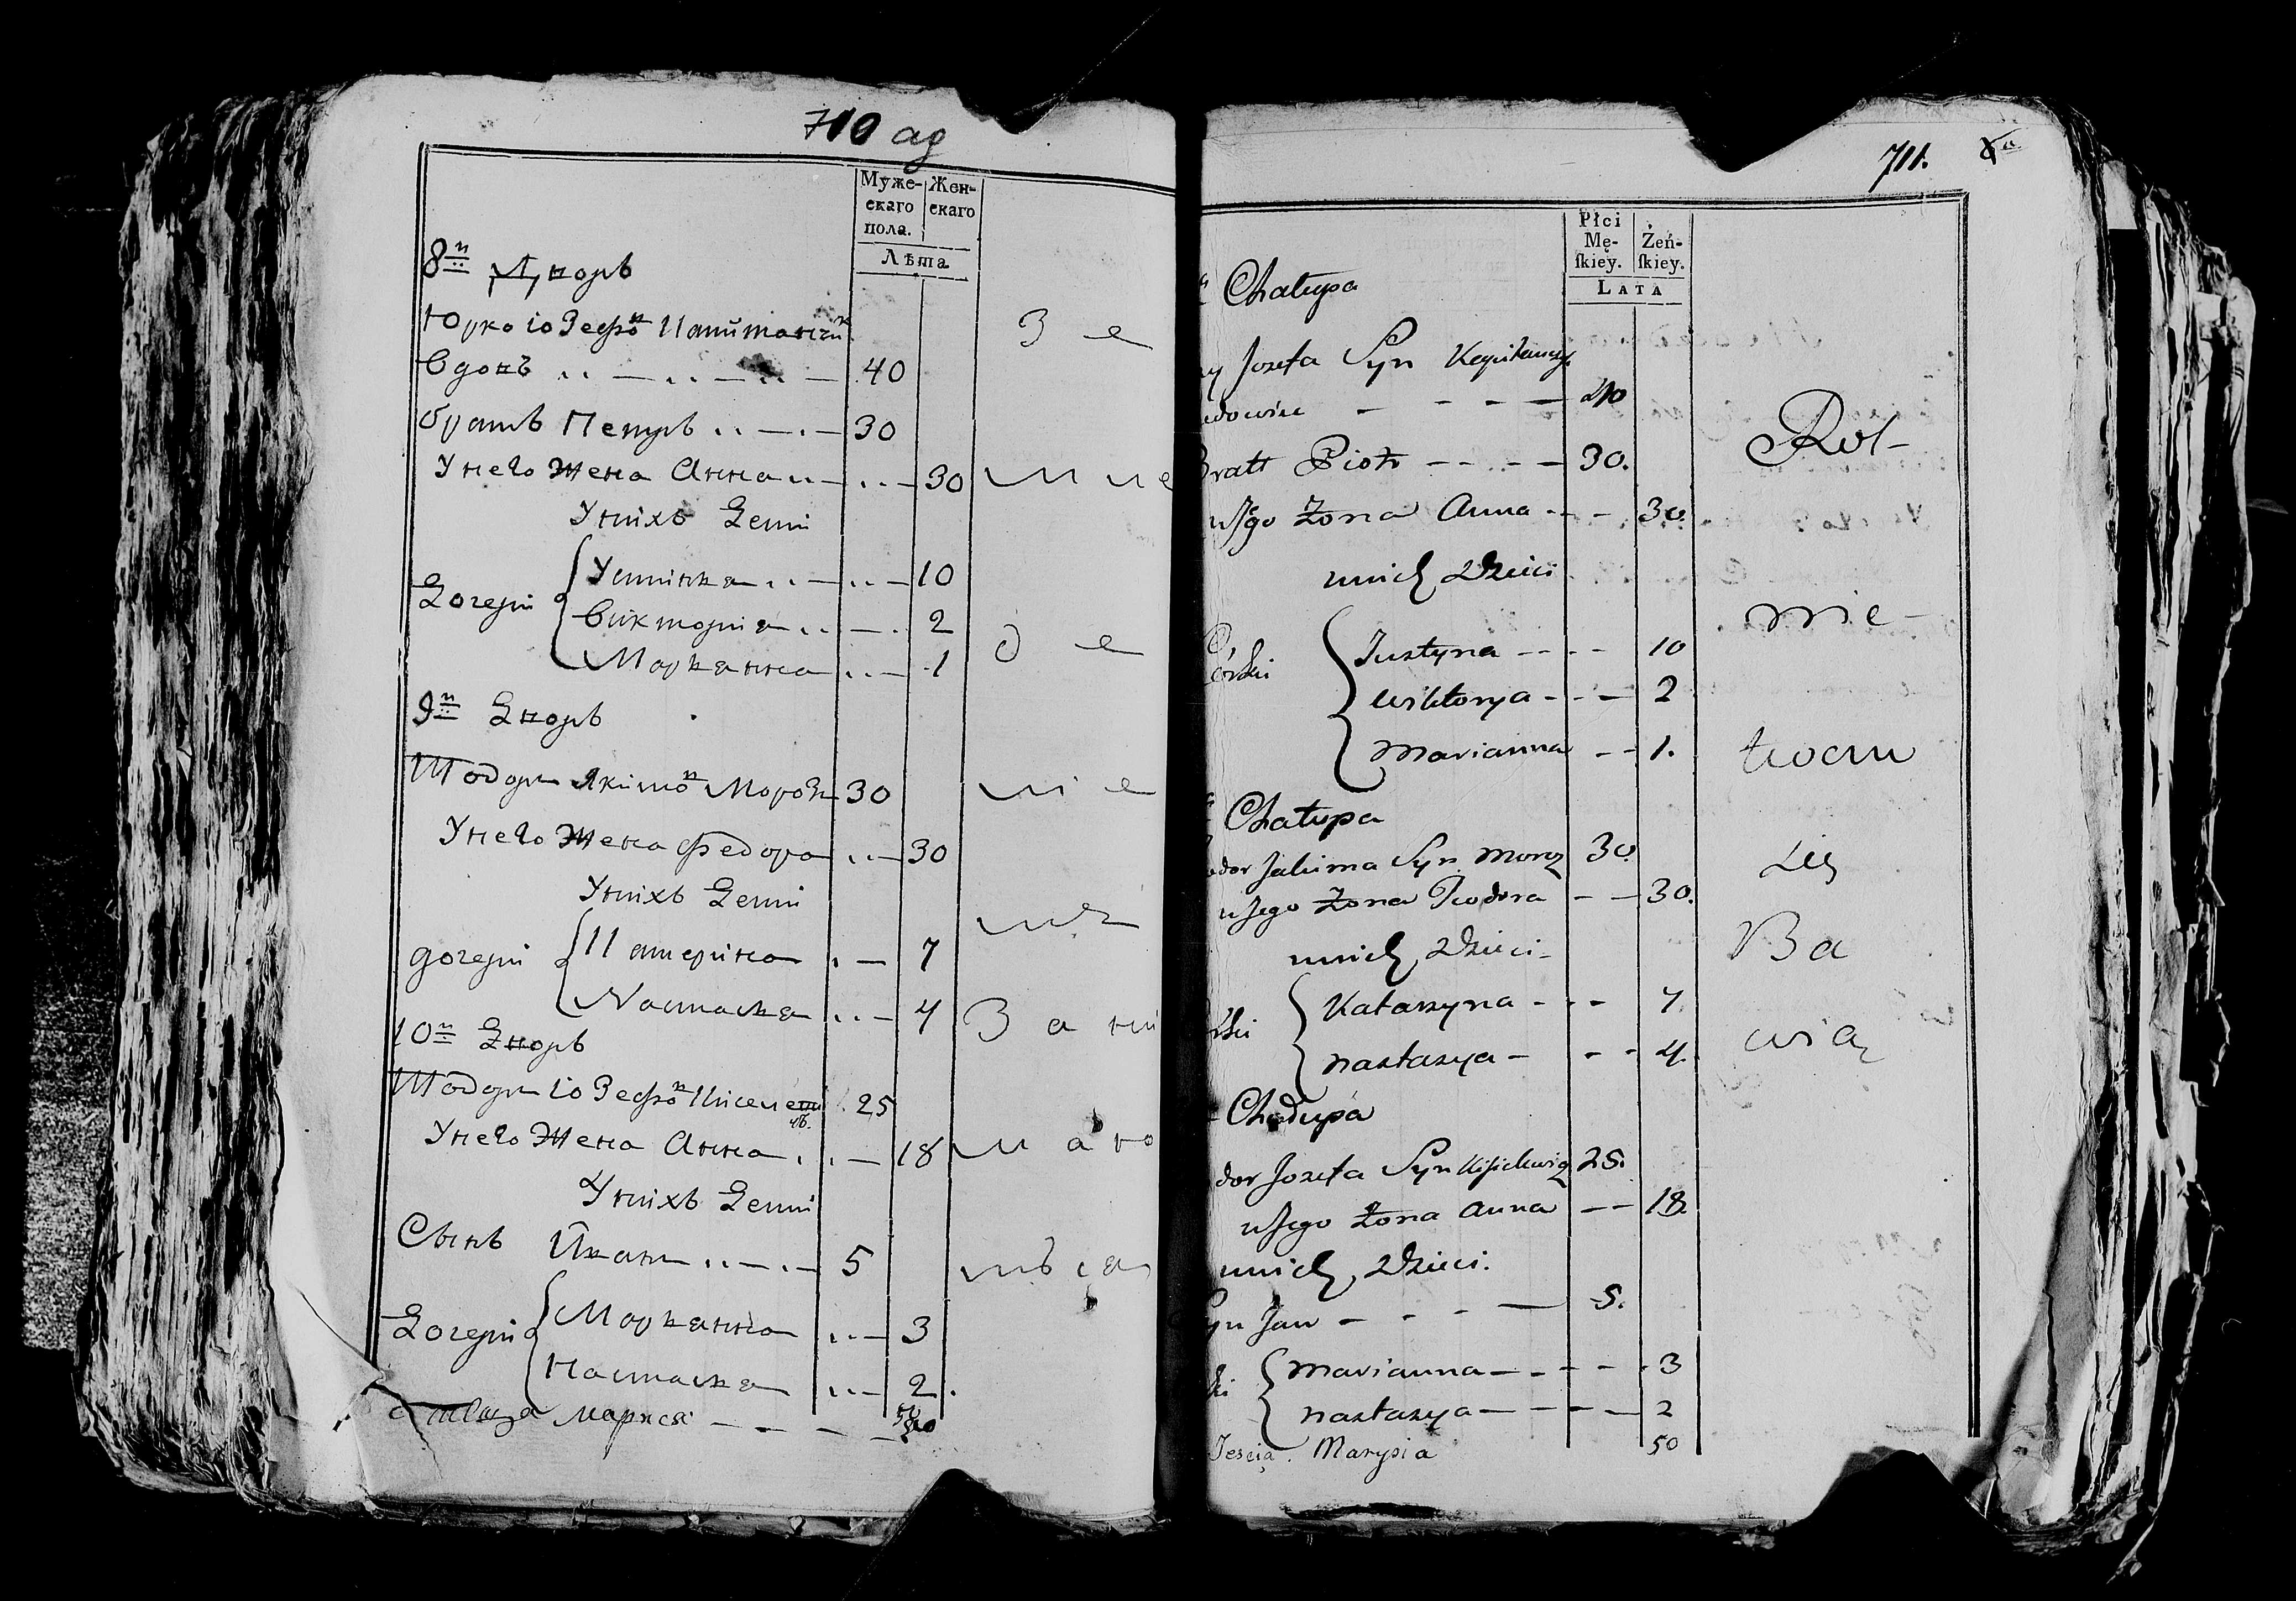 710 ag
Муже-
скаго
пола.
Жен-
скаго
Лѣта
8й Дворъ
Юрко Іозефов Капитанчик
вдовъ 40
братъ Петръ 30
У него жена Анна 30
У нихъ Дети
Дочери
Устинка 10
Виктория 2
Марианна 1
9й Дворъ
Тодоръ Якимов Морозъ 30
У него жена Федора 30
У нихъ Дети
дочери
Катерина 7
Настася 4
10й Дворъ
Тодоръ Іозефов
25
У него жена Анна 18
У нихъ Дети
Сынъ Иванъ 5
Дочери
Марианна 3
Настася 2
Марися 50
З е
м ле
д е
л е
З а ни
м а ю
711.
Płci
Mę-
ſkiey.
Żeń-
ſkiey.
LATA
Chałupa
Jozefa Syn
40
Bratt Piotr 30.
u Jego Żona Anna 30.
u nich Dzieci
Córki
Justyna 10
Wiktorya 2
Marianna 1.
Chałupa
dor Jakima Syn Moroz 30.
u Jego Żona Teodora 30.
u nich Dzieci
Katarzyna 7.
Nastazya 4.
Chałupa
dor Jozefa Syn Kisielewicz 25.
u Jego Żona Anna 18.
u nich Dzieci.
Syn Jan 5.
Marianna 3
Nastazya 2
Marysia 50
Rol-
nic-
twem
się
Ba
wią